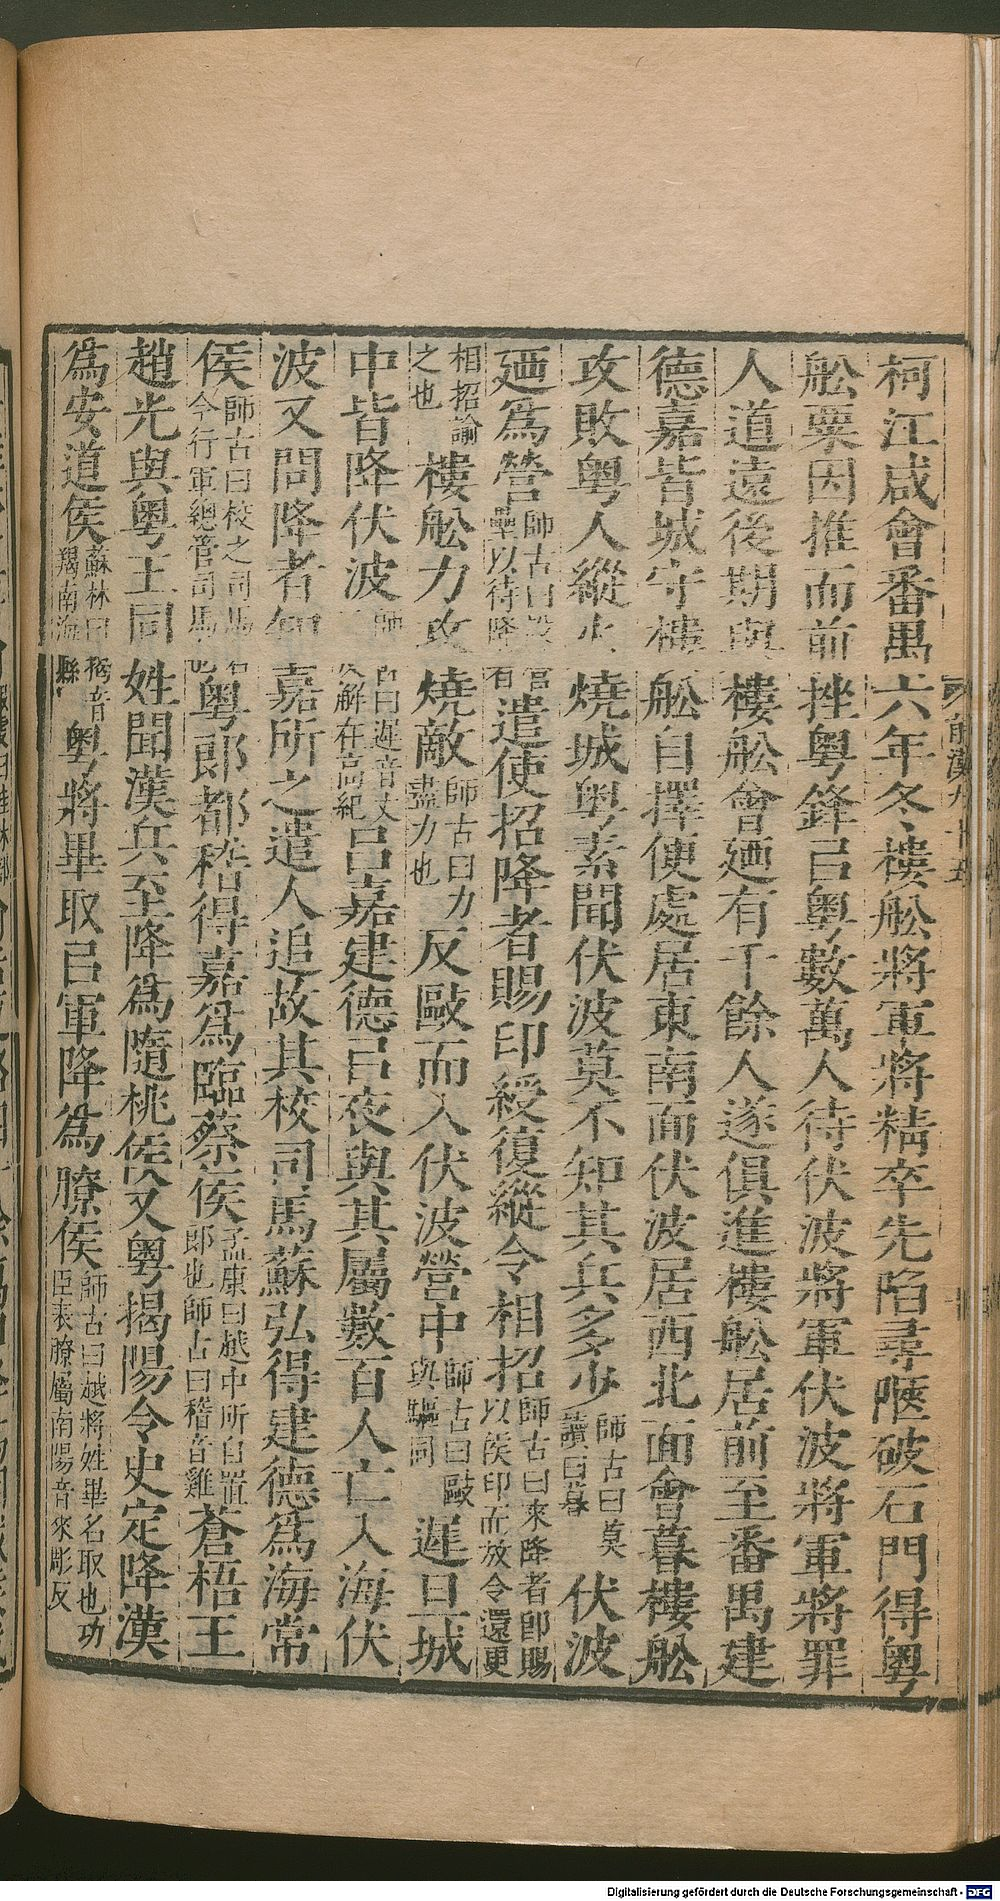 柯江咸會番禺六年冬樓舩將軍將精卒先陷尋陿破石門得粵
舩粟因推而前挫粵鋒㠯粵數萬人待伏波將軍伏波將軍將罪
人道遠後期與樓舩會廼有千餘人遂俱進樓舩居前至番禺建
德嘉皆城守樓舩自擇便處居東南面伏波居西北面會暮樓舩
攻敗粵人縱火燒城粵素聞伏波莫不知其兵多少師古曰莫讀曰暮伏波
廼爲營師古曰設營壘以待降者遣使招降者賜印綬復縱令相招師古曰來降者卽賜以侯印而放令還更
相招諭之也樓舩力攻燒敵師古曰力盡力也反歐而入伏波營中師古曰歐與驅同遲旦城
中皆降伏波師古曰遲音丈二反解在高紀呂嘉建德㠯夜與其屬數百人亡入海伏
波又問降者知嘉所之遣人追故其校司馬蘇弘得建德爲海常
侯師古曰校之司馬今行軍總管司馬粵郎都稽得嘉爲臨蔡侯孟康曰越中所自置郎也師古曰稽音雞蒼梧王
趙光與粵王同姓聞漢兵至降爲隨桃侯又粵揭陽令史定降漢
爲安道侯蘇林曰揭音羯南海縣粵將畢取㠯軍降爲膫侯師古曰越將姓畢名取也功臣表膫屬南陽音來彫反
前漢九十五
Digitalisierung gefördert durch die Deutsche Forschungsgemeinschaft - DFG